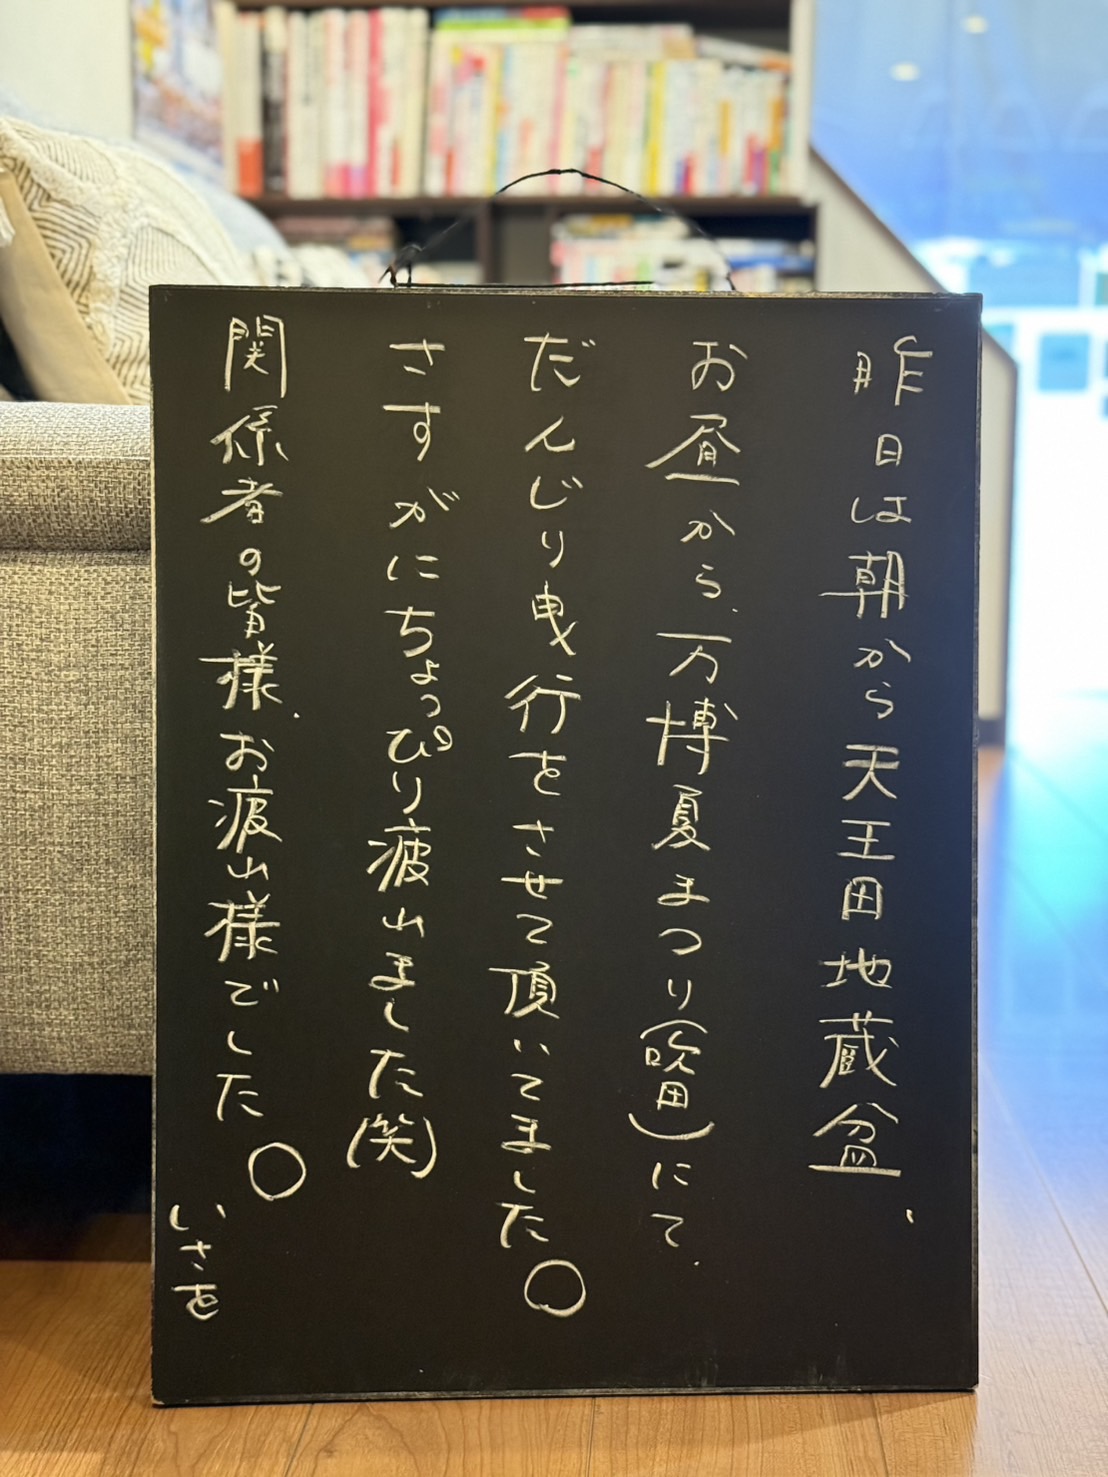 昨日は朝から天王田地蔵盆、
お昼から、万博夏まつり(吹田)にて、
だんじり曳行をさせて頂いてました。
さすがにちょっぴり疲れました(笑)
関係者の皆様、お疲れ様でした。
いさを